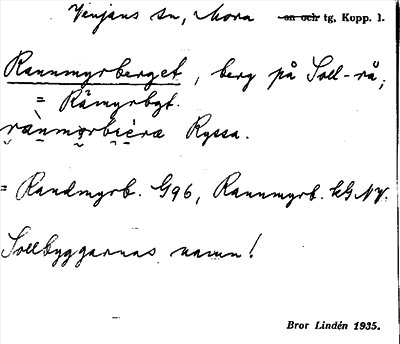 Venjans sn, Mora sn och tg, Kopp. l.
Rannmyrberget, berg på Soll-rå,
= Råmyrbgt.
Ryssa.
= Randmyrb. G96, Rannmyrb. kG NV.
Sollbyggarnas namn!
Bror Lindén 1935.